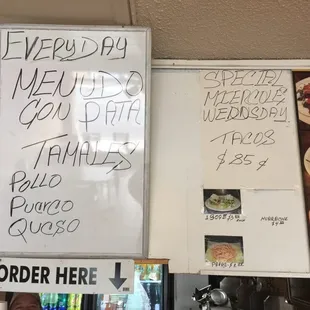 EVERYDAY
MENUDO
CON PATA
TAMALES
POLLO
PUERCO
QUESO
ORDER HERE
SPECIAL
MIERCOLES
WEDNSDAY
TACOS
$ 85 ¢